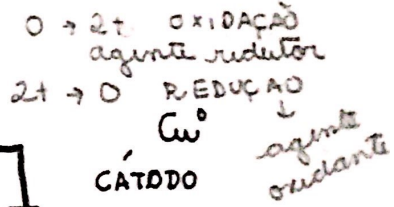 0 → 2+ OXIDAÇÃO
agente redutor
2+ → 0 REDUÇÃO
↓
Cu⁰
agente
oxidante
CÁTODO